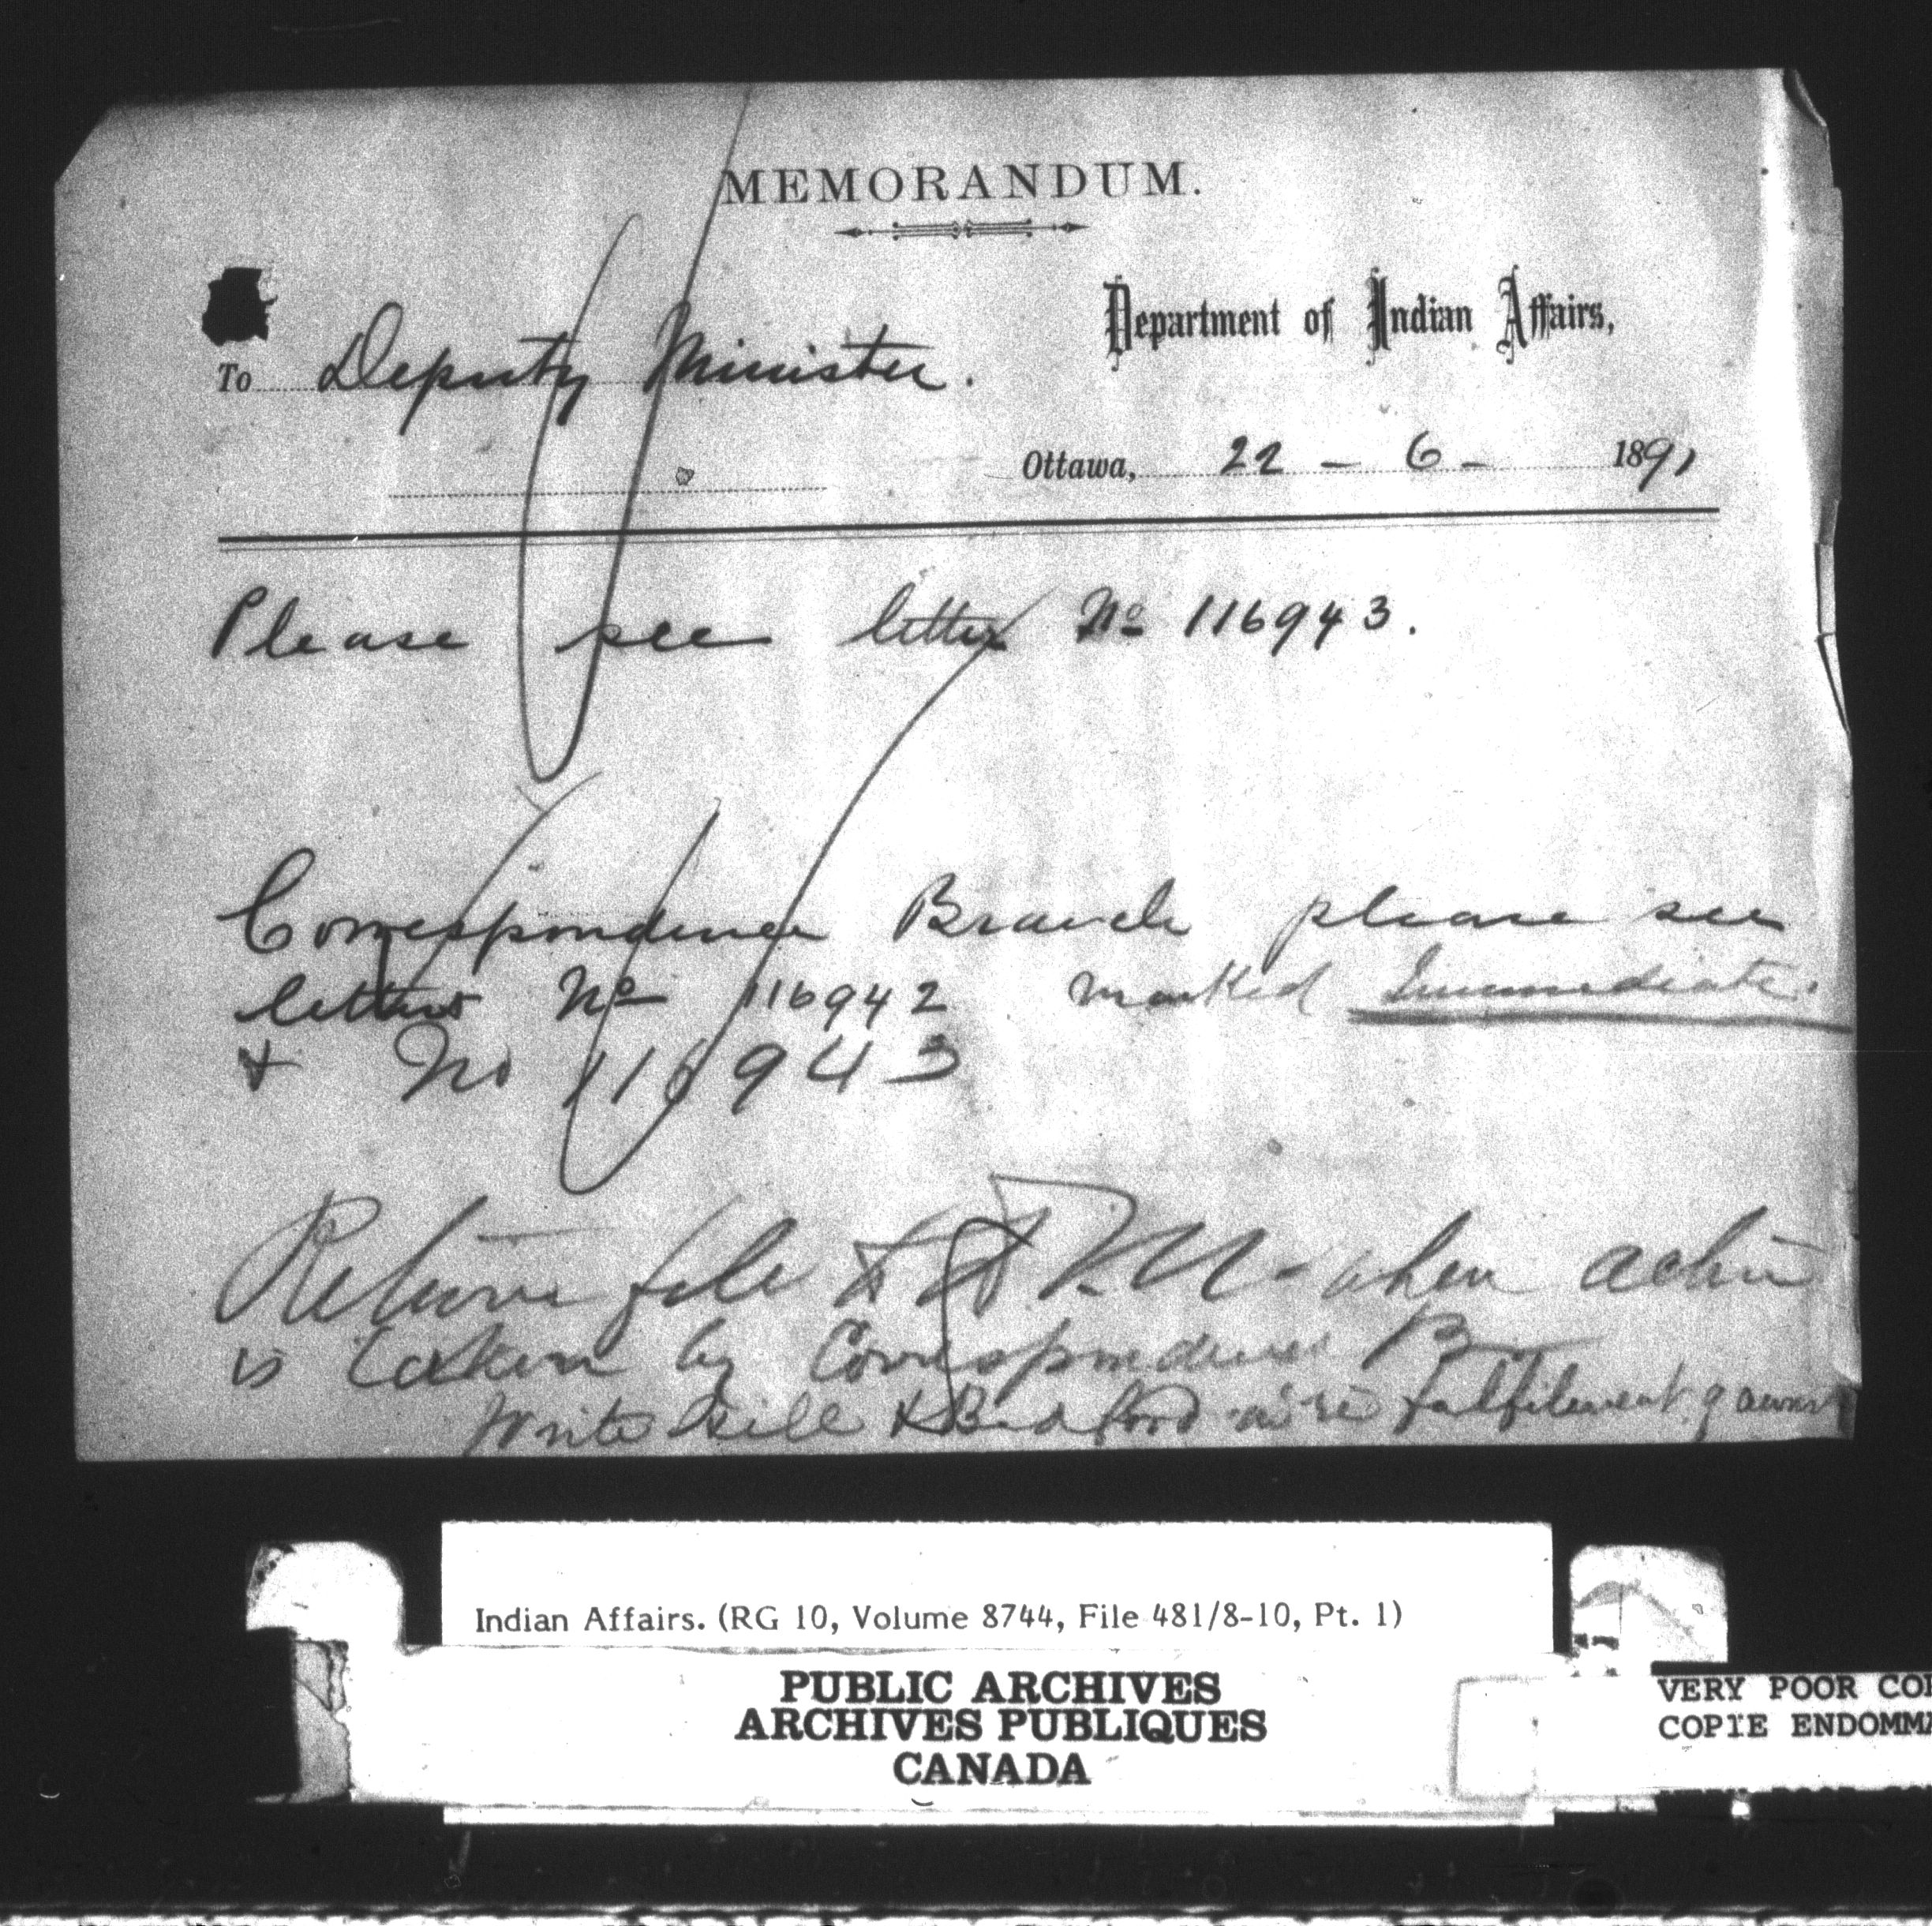 MEMORANDUM.
Department of Indian Affairs,
To Deputy Minister.
Ottawa, 22 - 6 - 1891
Please see letter No 116943.
Correspondence Branch please see
letters No 116942 marked Immediate.
& No 116943
Return file to D.M. when action
is taken by Correspondence Br
Write & Bedford re fulfilment of
Indian Affairs. (RG 10, Volume 8744, File 481/8-10, Pt. 1)
PUBLIC ARCHIVES
ARCHIVES PUBLIQUES
CANADA
VERY POOR COP
COPIE ENDOMMA